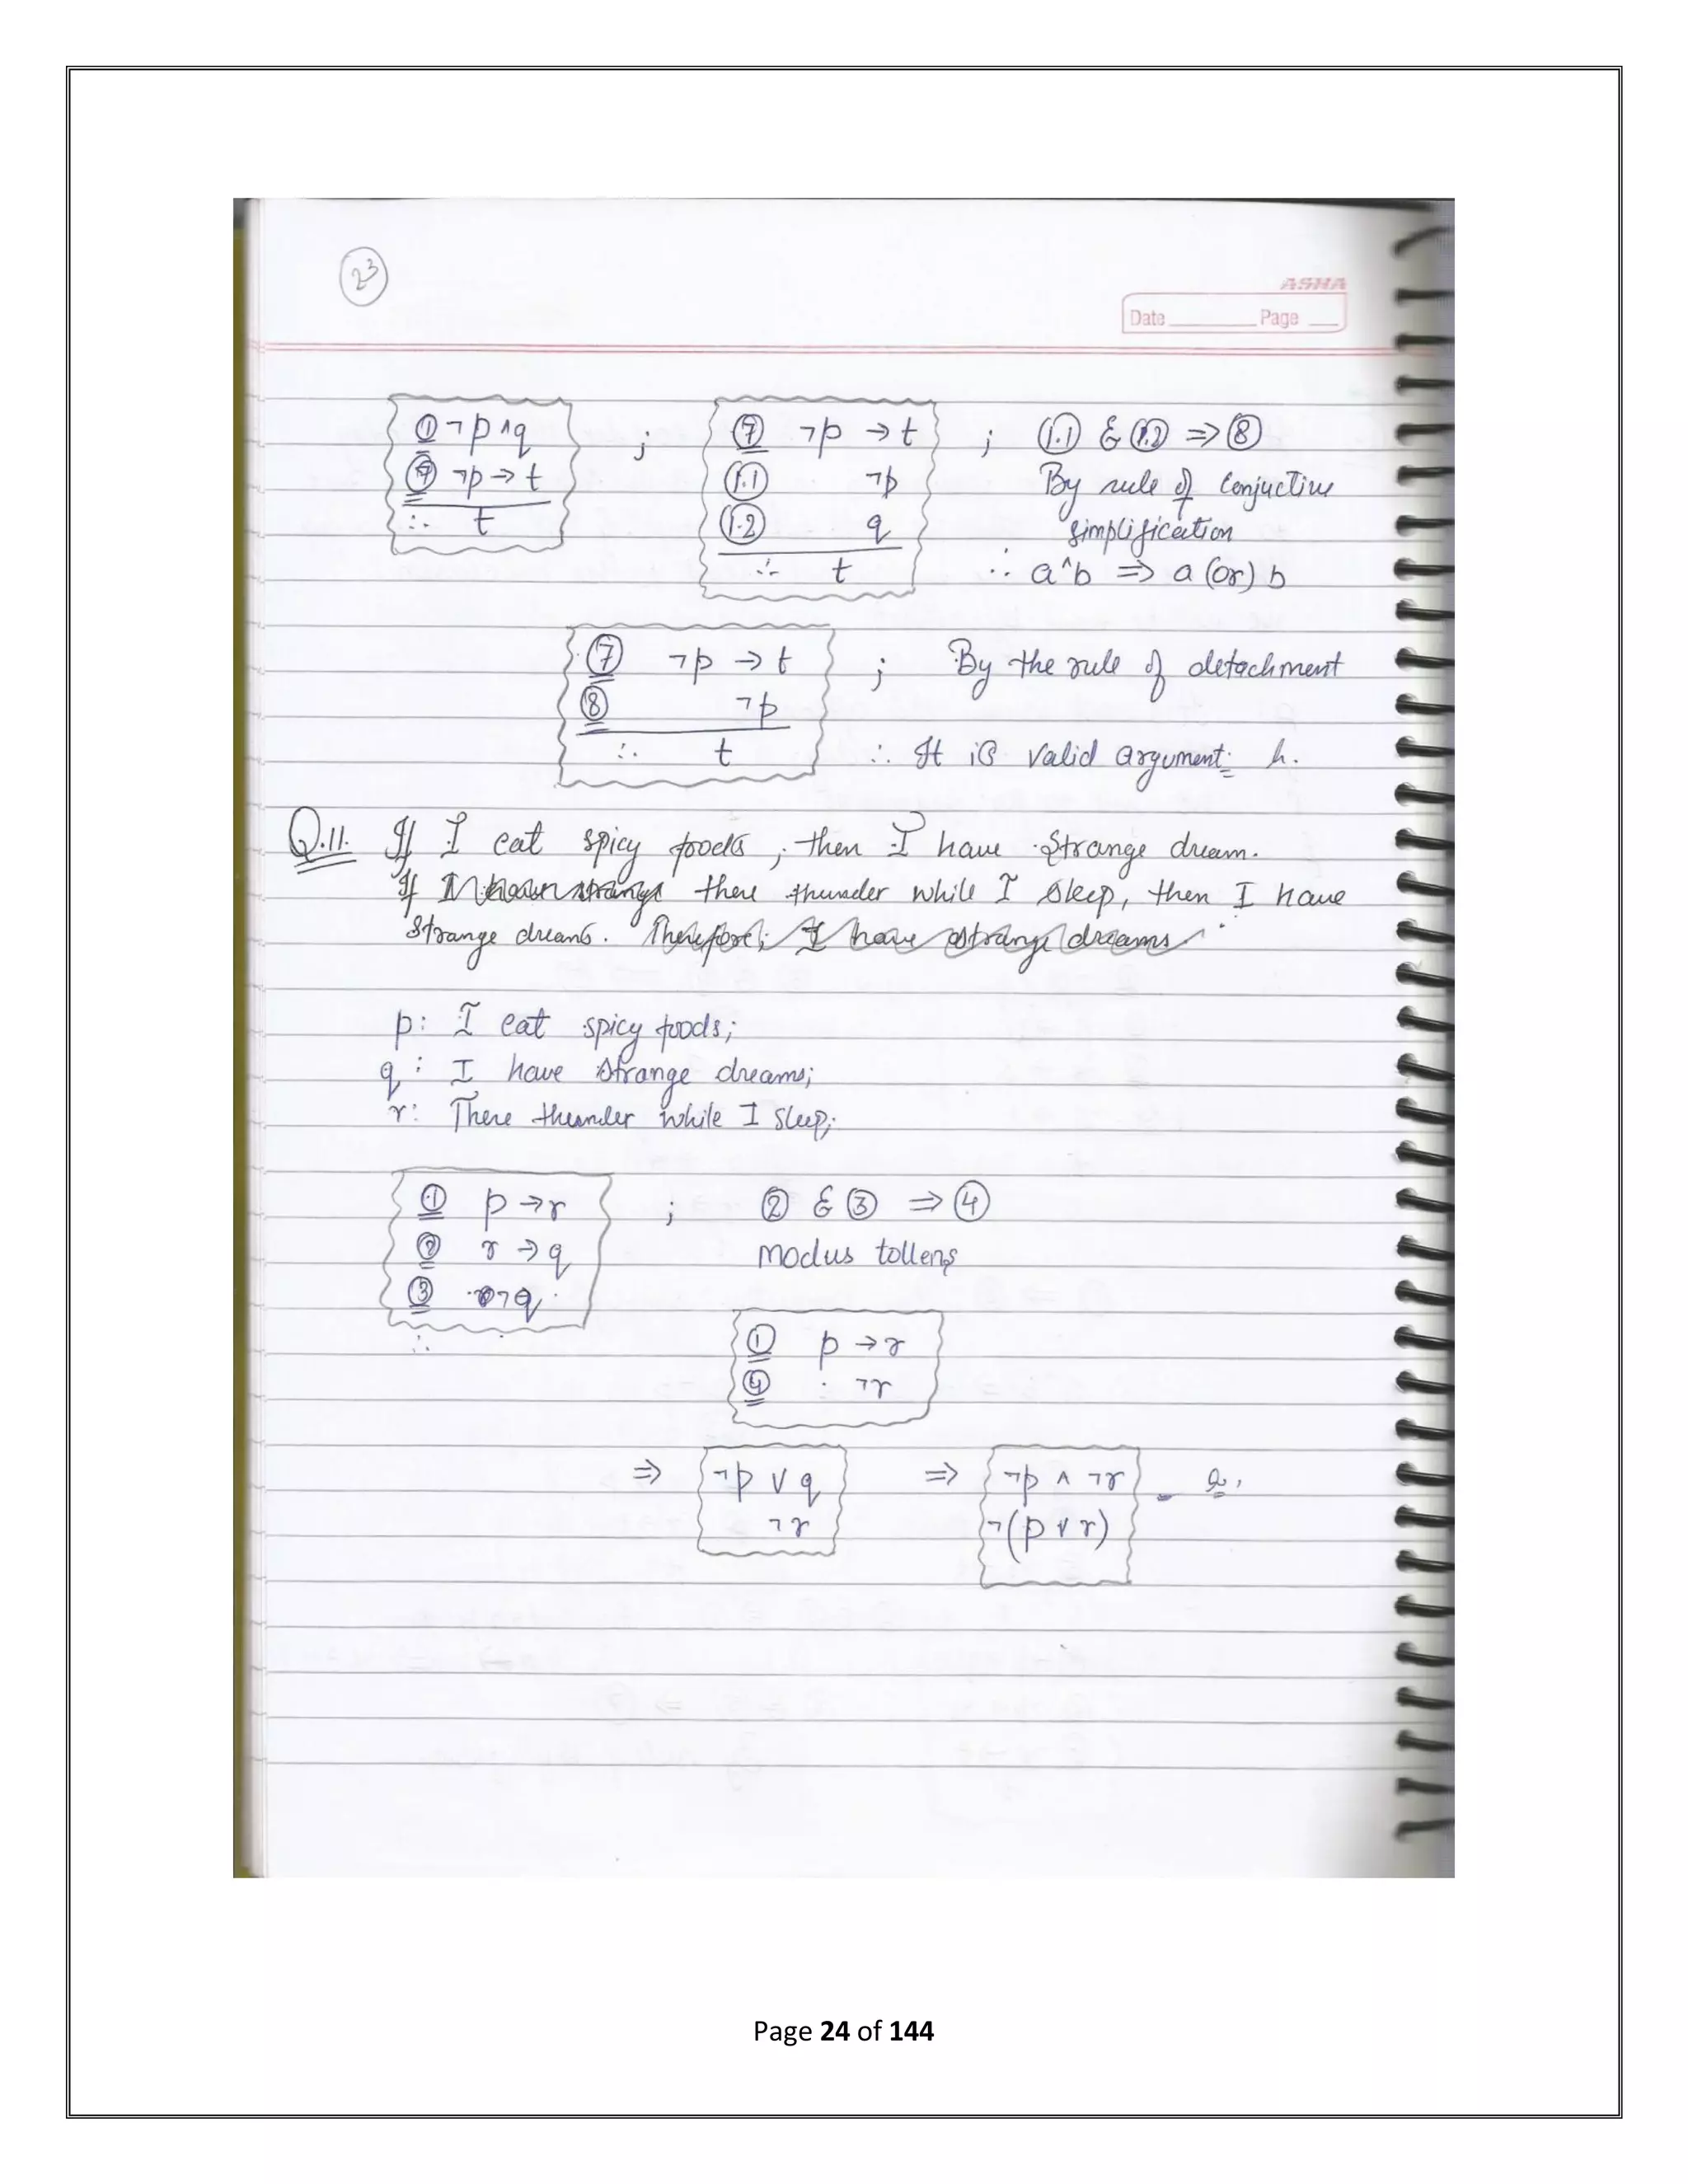 23
ASHA
Date Page
① ¬p ∧ q ; ⑦ ¬p → t ; (1.1) & (1.2) => ⑧
⑦ ¬p → t (1.1) ¬p By rule of Conjuctive
∴ t (1.2) q simplification
∴ t ∴ a^b => a (or) b
⑦ ¬p → t ; By the rule of detachment
⑧ ¬p
∴ t ∴ It is valid argument.
Q.11. If I eat spicy foods, then I have strange dream.
If there thunder while I sleep, then I have
strange dreams. Therefore, I have strange dreams.
p: I eat spicy foods;
q: I have strange dreams;
r: There thunder while I sleep;
① p → r ; ② & ③ => ④
② r → q Modus tollens
③ ¬q
∴
① p → r
④ ¬r
=> ¬p ∨ q => ¬p ∧ ¬r
¬r ¬(p ∨ r)
Page 24 of 144